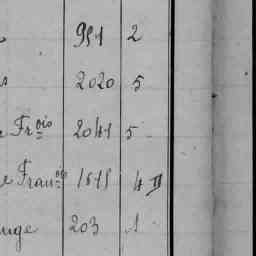 951 2
2020 5
Frois 2041 5
e Franois 1615 4 II
nge 203 1